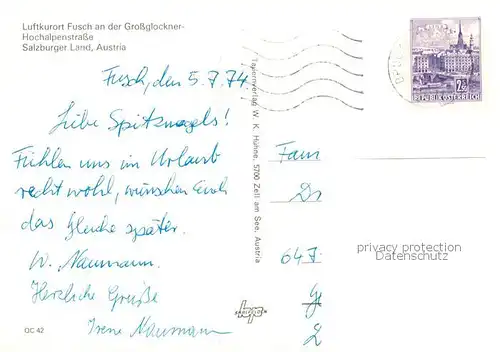 Luftkurort Fusch an der Großglockner-
Hochalpenstraße
Salzburger Land, Austria
Fusch, den 5.7.74.
Liebe Spitznagels!
Fühlen uns im Urlaub
recht wohl, wünschen Euch
das Gleiche später.
W. Naumann.
Herzliche Grüße
Irene Naumann
OC 42
Tauernverlag W. K. Hühne, 5700 Zell am See, Austria
REPUBLIK ÖSTERREICH
Fam
Dr
647
privacy protection
Datenschutz